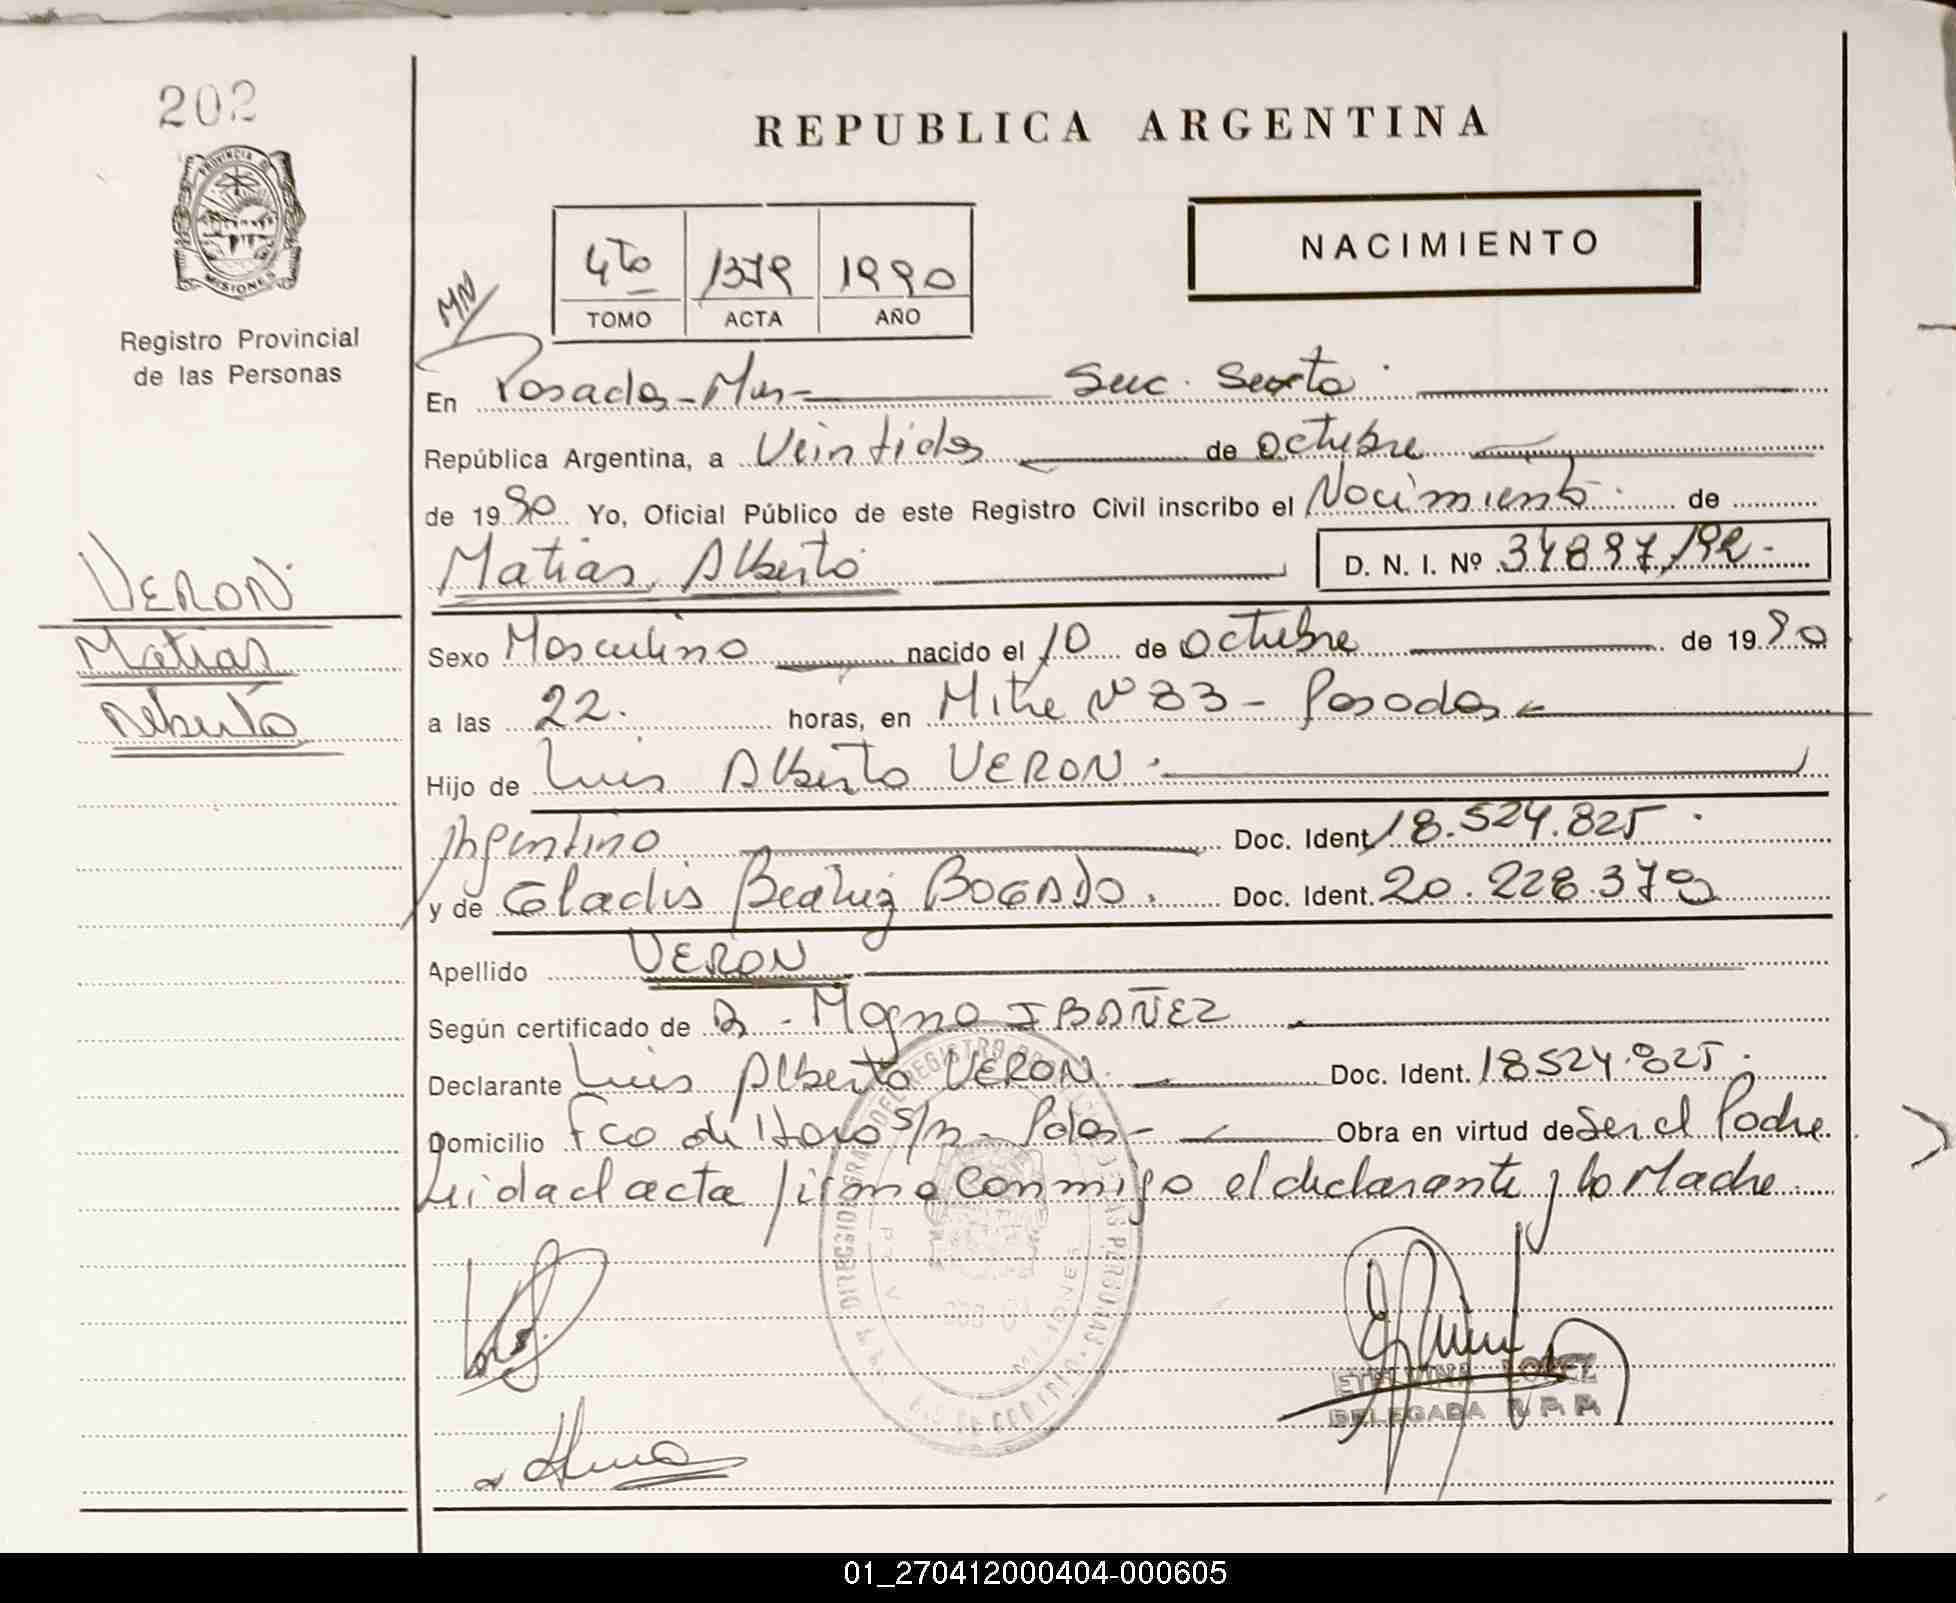 202
PROVINCIA DE
MISIONES
Registro Provincial
de las Personas
REPUBLICA ARGENTINA
NACIMIENTO
4to 1379 1990
TOMO ACTA AÑO
MN
En Posadas - Mnes - Suc. Sexta
República Argentina, a Veintidos de octubre
de 1990 Yo, Oficial Público de este Registro Civil inscribo el Nacimiento de
Matias Alberto D. N. I. Nº 34897192
VERON
Matias
Alberto
Sexo Masculino nacido el 10 de octubre de 1990
a las 22. horas, en Mitre Nº 83 - Posadas
Hijo de Luis Alberto VERON
Argentino Doc. Ident. 18.524.825
y de Gladis Beatriz BOGADO. Doc. Ident. 20.228.379
Apellido VERON
Según certificado de Magno IBAÑEZ
Declarante Luis Alberto VERON. Doc. Ident. 18524.825.
Domicilio Fco de Haro s/n - Pdas - Obra en virtud de Ser el Padre
Leida el acta firma conmigo el declarante y la Madre
ETELVINA LOPEZ
DELEGADA R.P.P.
01_270412000404-000605